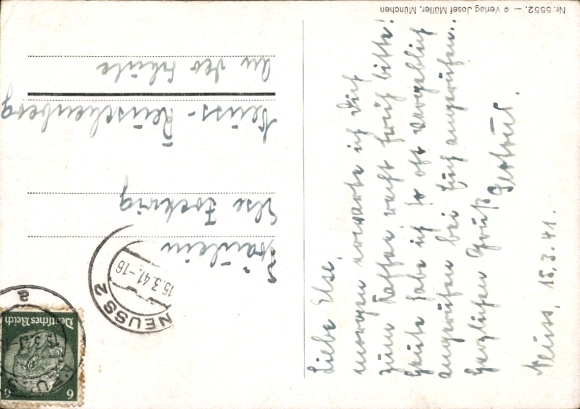 Nr. 5552. — © Verlag Josef Müller, München
Neuss, 15.3.41.
Liebe Else,
morgen erwarte ich Dich
zum Kaffee recht früh bitte!
Heute habe ich so oft vergeblich
angerufen bei Euch angerufen..
Herzlichen Gruß
Gertrud.
Fräulein
Else
Neuss-Reuschenberg
An der Schule
NEUSS 2
15.3.41.-16
a
Deutsches Reich
6
6